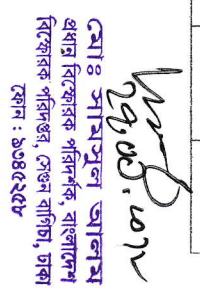 ২৭.০১.১৮
মোঃ সামসুল আলম
প্রধান বিস্ফোরক পরিদর্শক, বাংলাদেশ
বিস্ফোরক পরিদপ্তর, সেগুন বাগিচা, ঢাকা
ফোন : ৯৩৪৫২৫৮